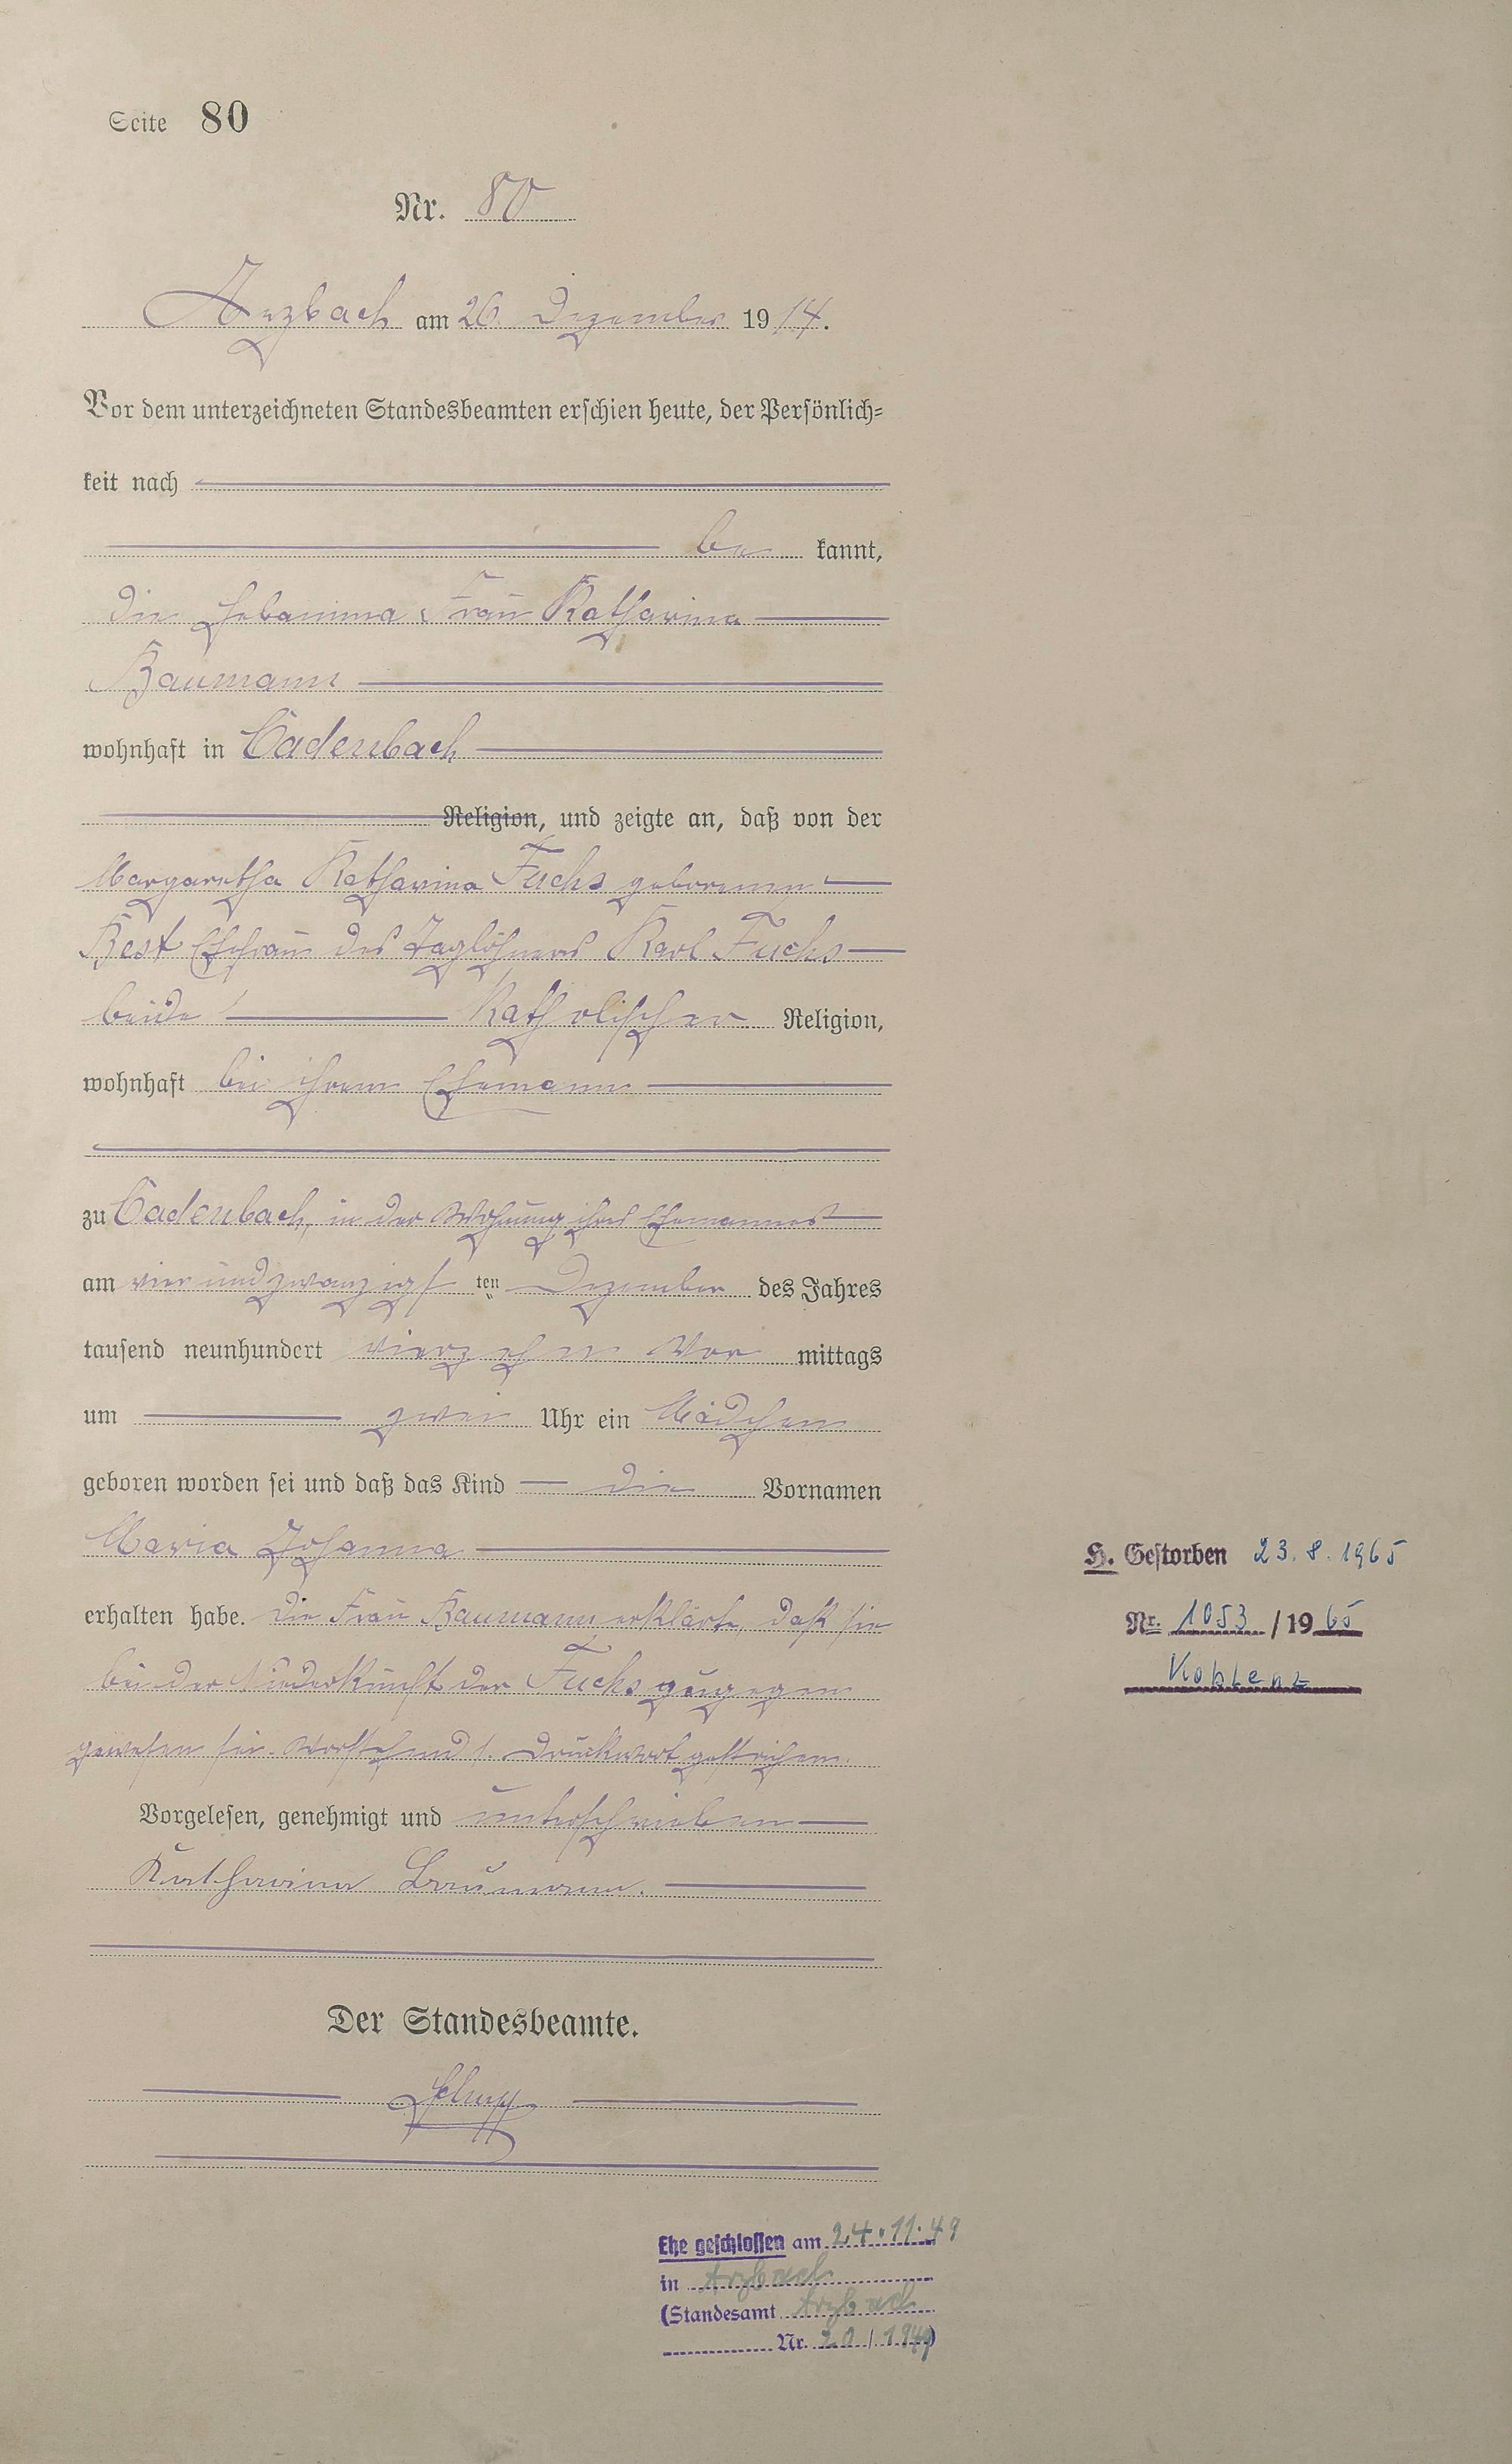 Seite 80
Nr. 80
Arzbach am 26. Dezember 1914.
Vor dem unterzeichneten Standesbeamten erschien heute, der Persönlich-
keit nach
be kannt,
die Hebamme Frau Katharina
Baumann
wohnhaft in Cadenbach
Religion, und zeigte an, daß von der
Margaretha Katharina Fuchs geborenen
Best Ehefrau des Taglöhners Karl Fuchs
beide Katholischer Religion,
wohnhaft bei ihrem Ehemann
zu Cadenbach, in der Wohnung ihres Ehemannes
am vierundzwanzigsten Dezember des Jahres
tausend neunhundert vierzehn Vor mittags
um zwei Uhr ein Mädchen
geboren worden sei und daß das Kind die Vornamen
Maria Johanna
erhalten habe. Die Frau Baumann erklärte, daß sie
bei der Niederkunft der Fuchs zugegen
gewesen sei. Vorstehend 1 Druckwort gestrichen.
Vorgelesen, genehmigt und unterschrieben
Katharina Baumann.
Der Standesbeamte.
H. Gestorben 23.8.1965
Nr. 1053 / 1965
Koblenz
Ehe geschlossen am 24.11.49
in Arzbach
(Standesamt Arzbach
Nr. 20/1949)